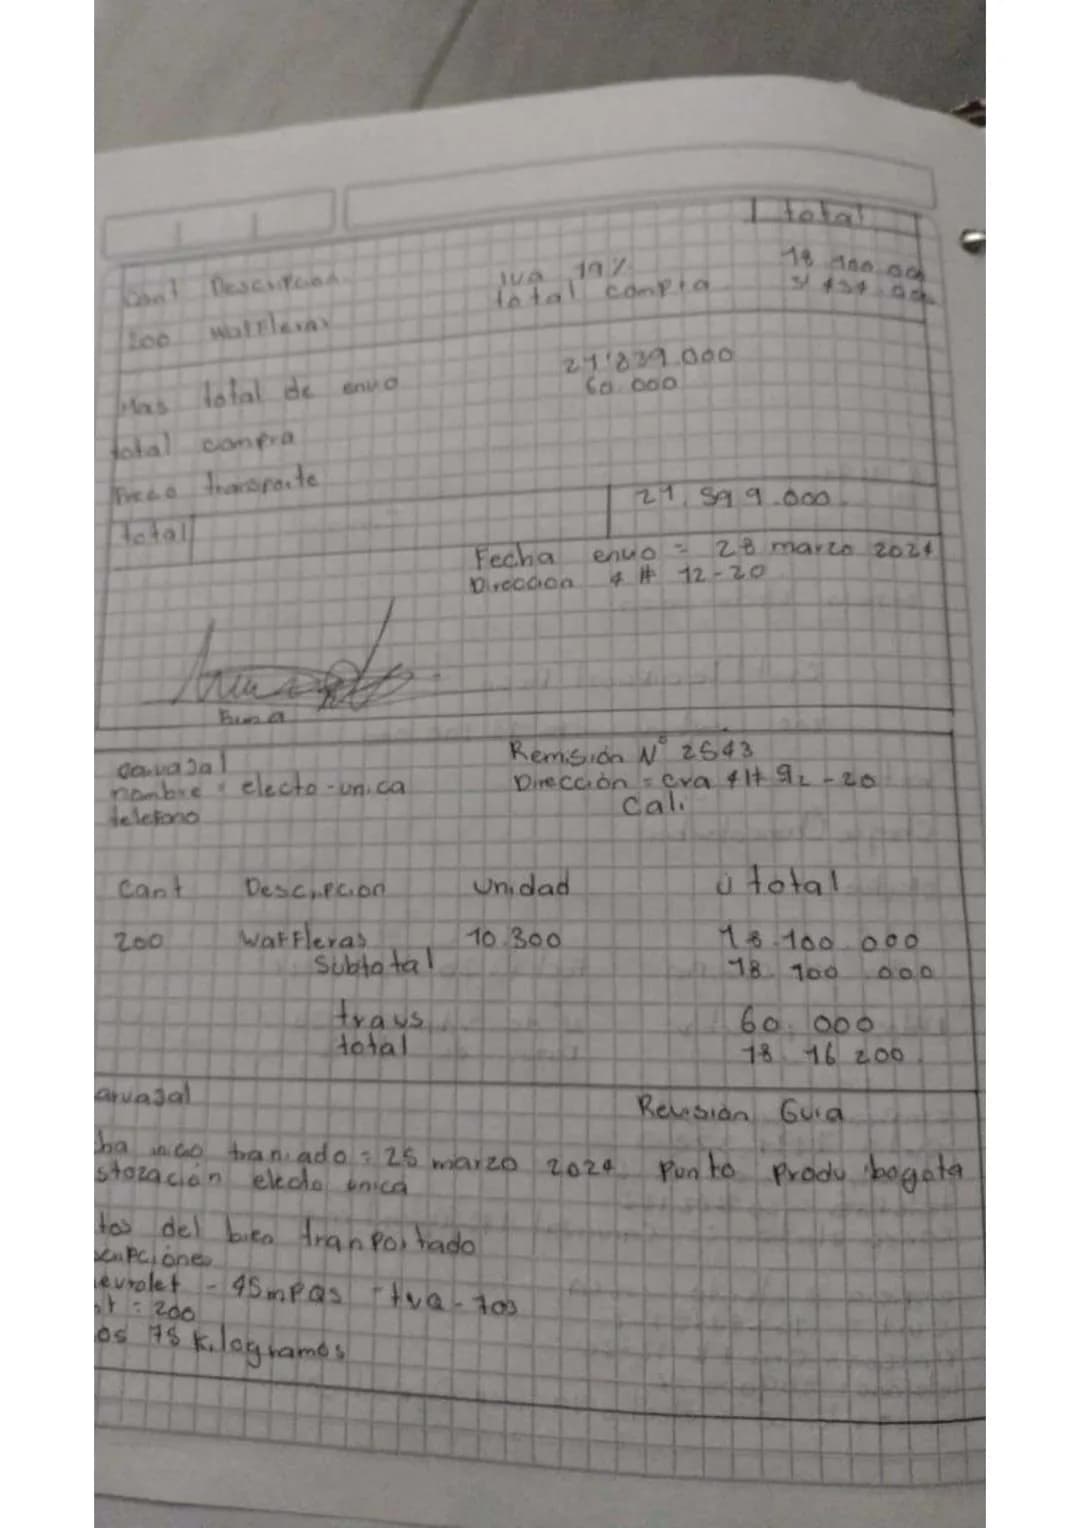 total
Cant Descripcion
iva 19%
18 100.000
total compra
3'439.000
200 Waffleras
Mas total de envio
21'839.000
60.000
total compra
Precio transporte
total
21.899.000
Fecha envio = 28 marzo 2024
Direccion 4 # 12-20
Firma
carvajal
Remisión N° 2543
nombre : electo-unica
Dirección = cra 4 # 92-20
Cali
telefono
Cant Descripcion Unidad total
200 Waffleras 10.300 18.100.000
Subtotal 18 100 .000
trans 60.000
total 18 16 200
arvajal
Revisión Guia
cha inicio traniado = 25 marzo 2024 Punto Produ bogota
stozación electo unica
tos del bien tranportado
scripciones
evrolet - 45mpqs - tva-703
nt = 200
os 75 kilogramos